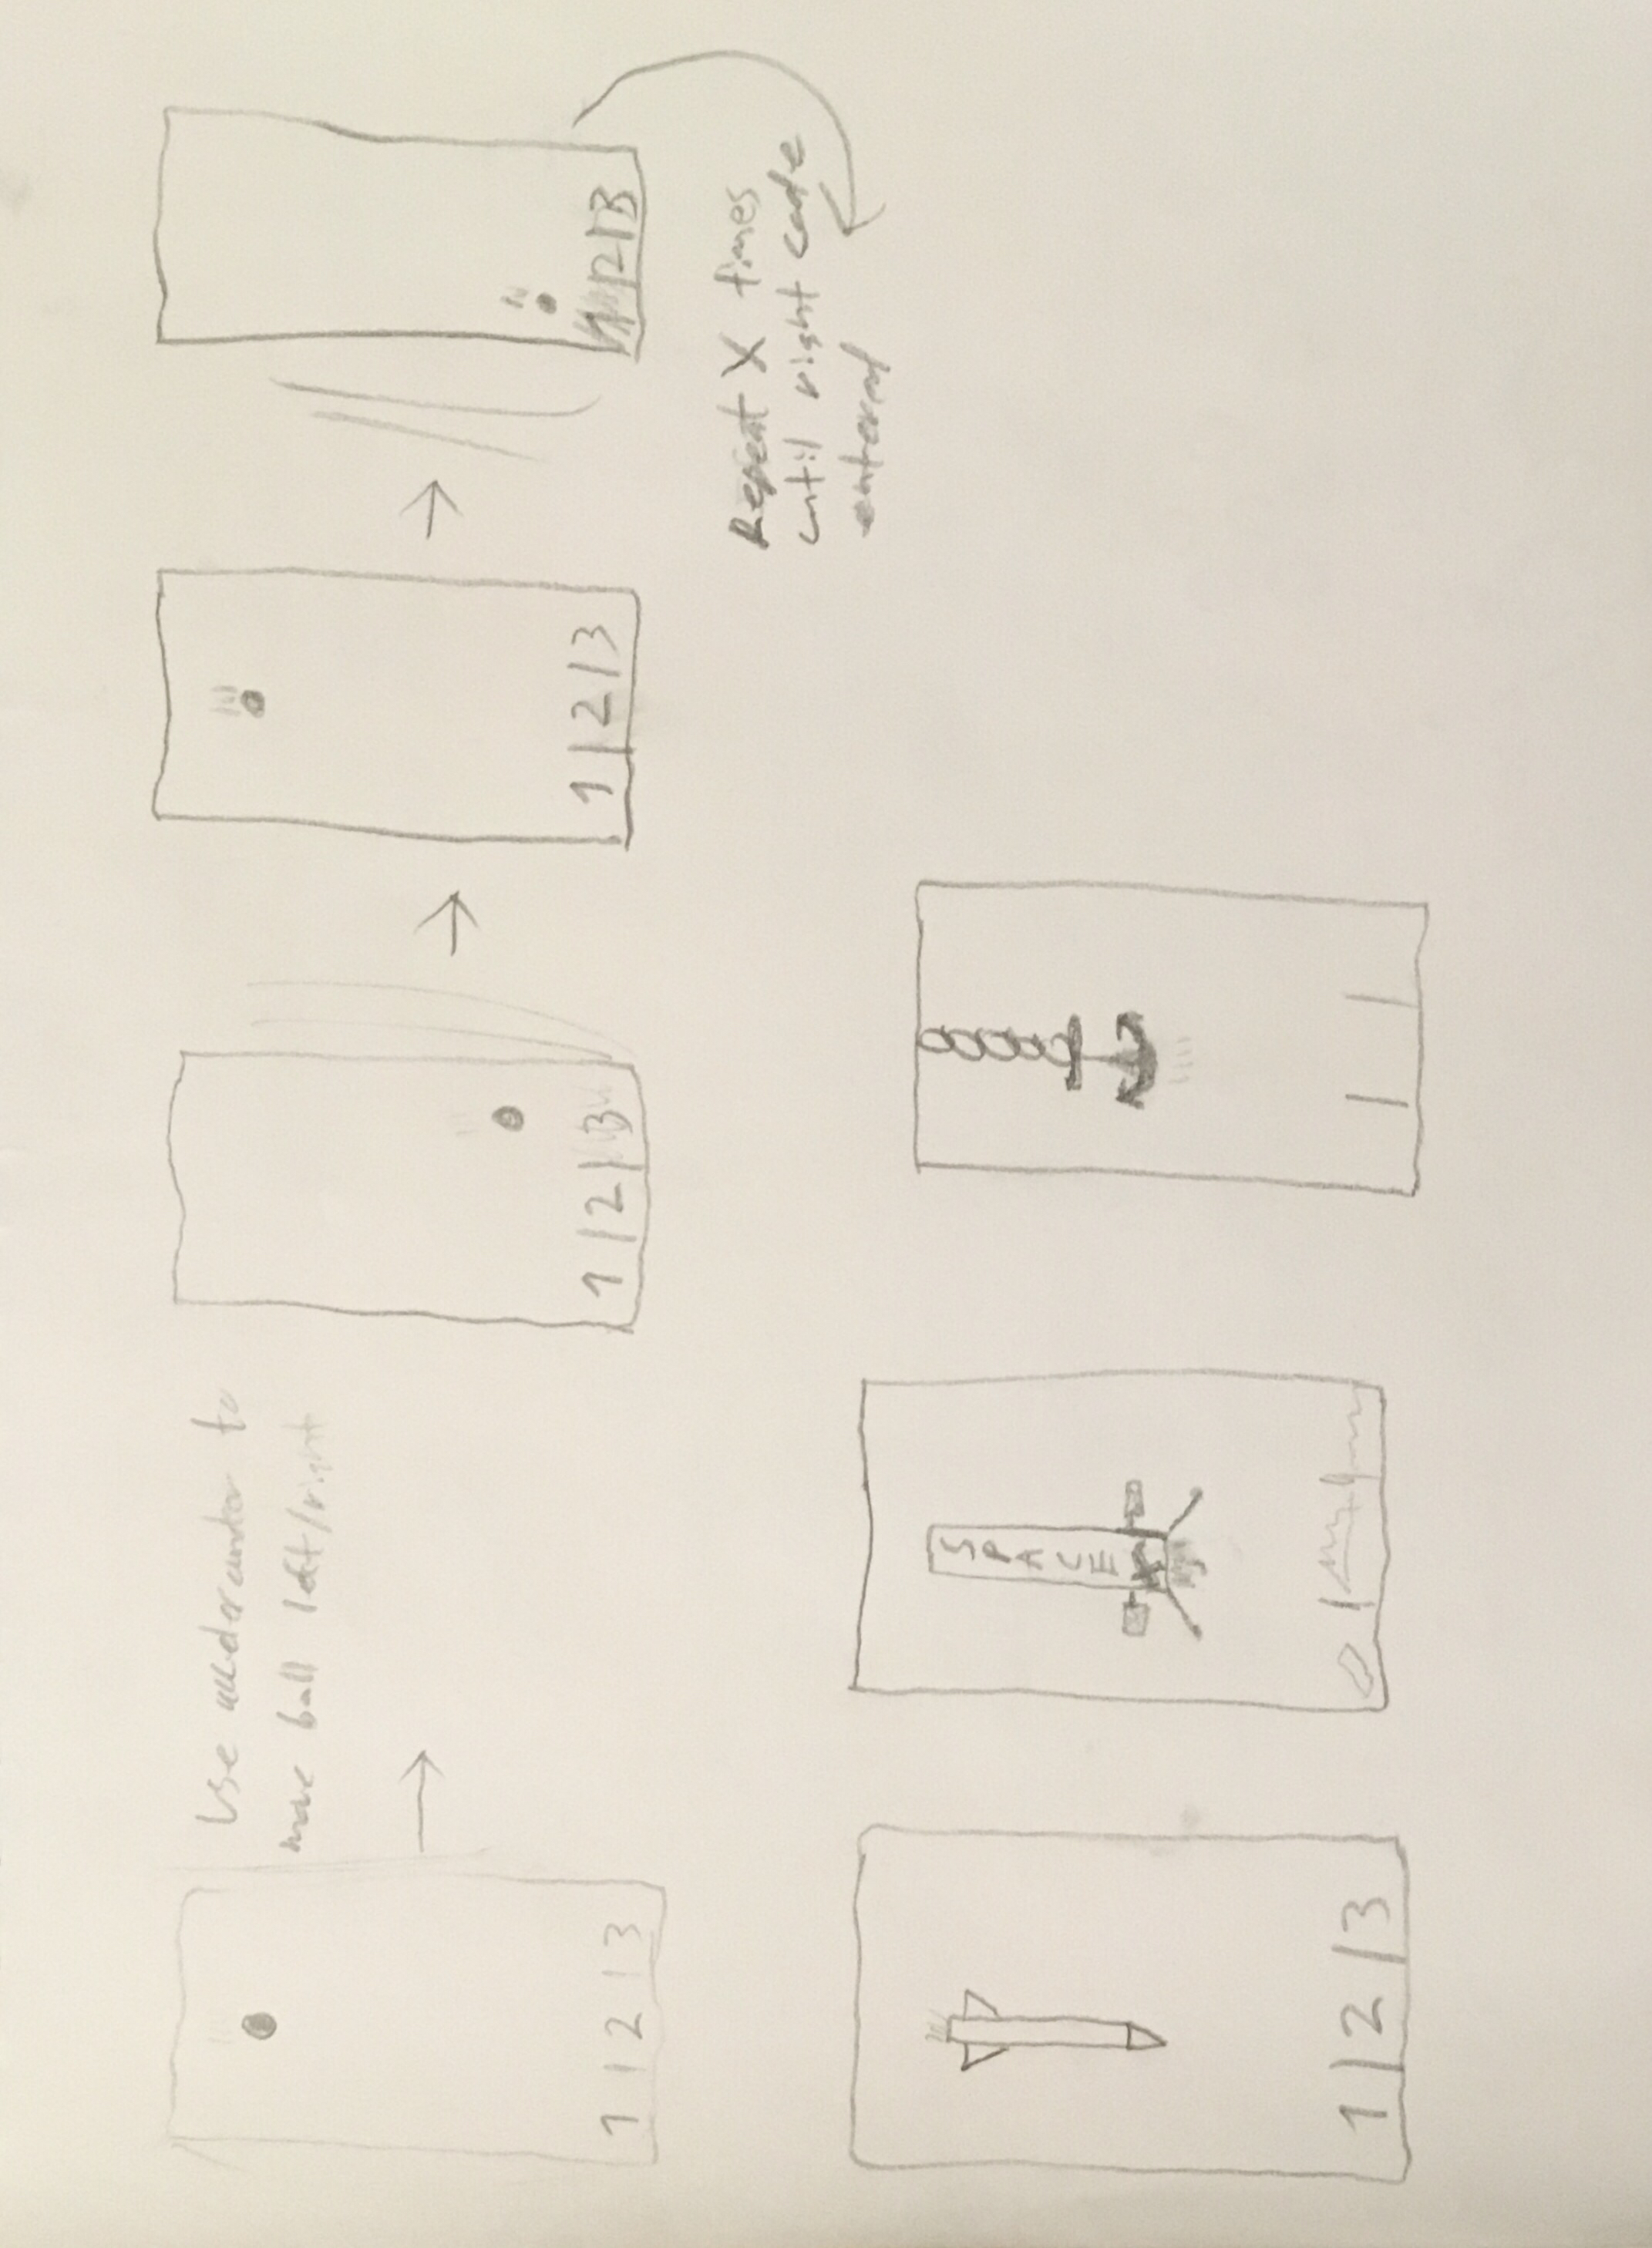 Use accelerometer to
move ball left/right
1 | 2 | 3
1 | 2 | 3
1 | 2 | 3
1 | 2 | 3
Repeat X times
until right code
entered
1 | 2 | 3
S
P
A
C
E
X